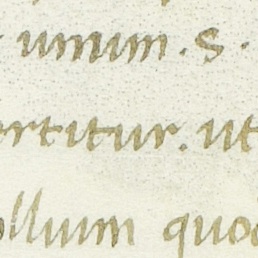 unum. s.
ertitur. ut
ollium quod